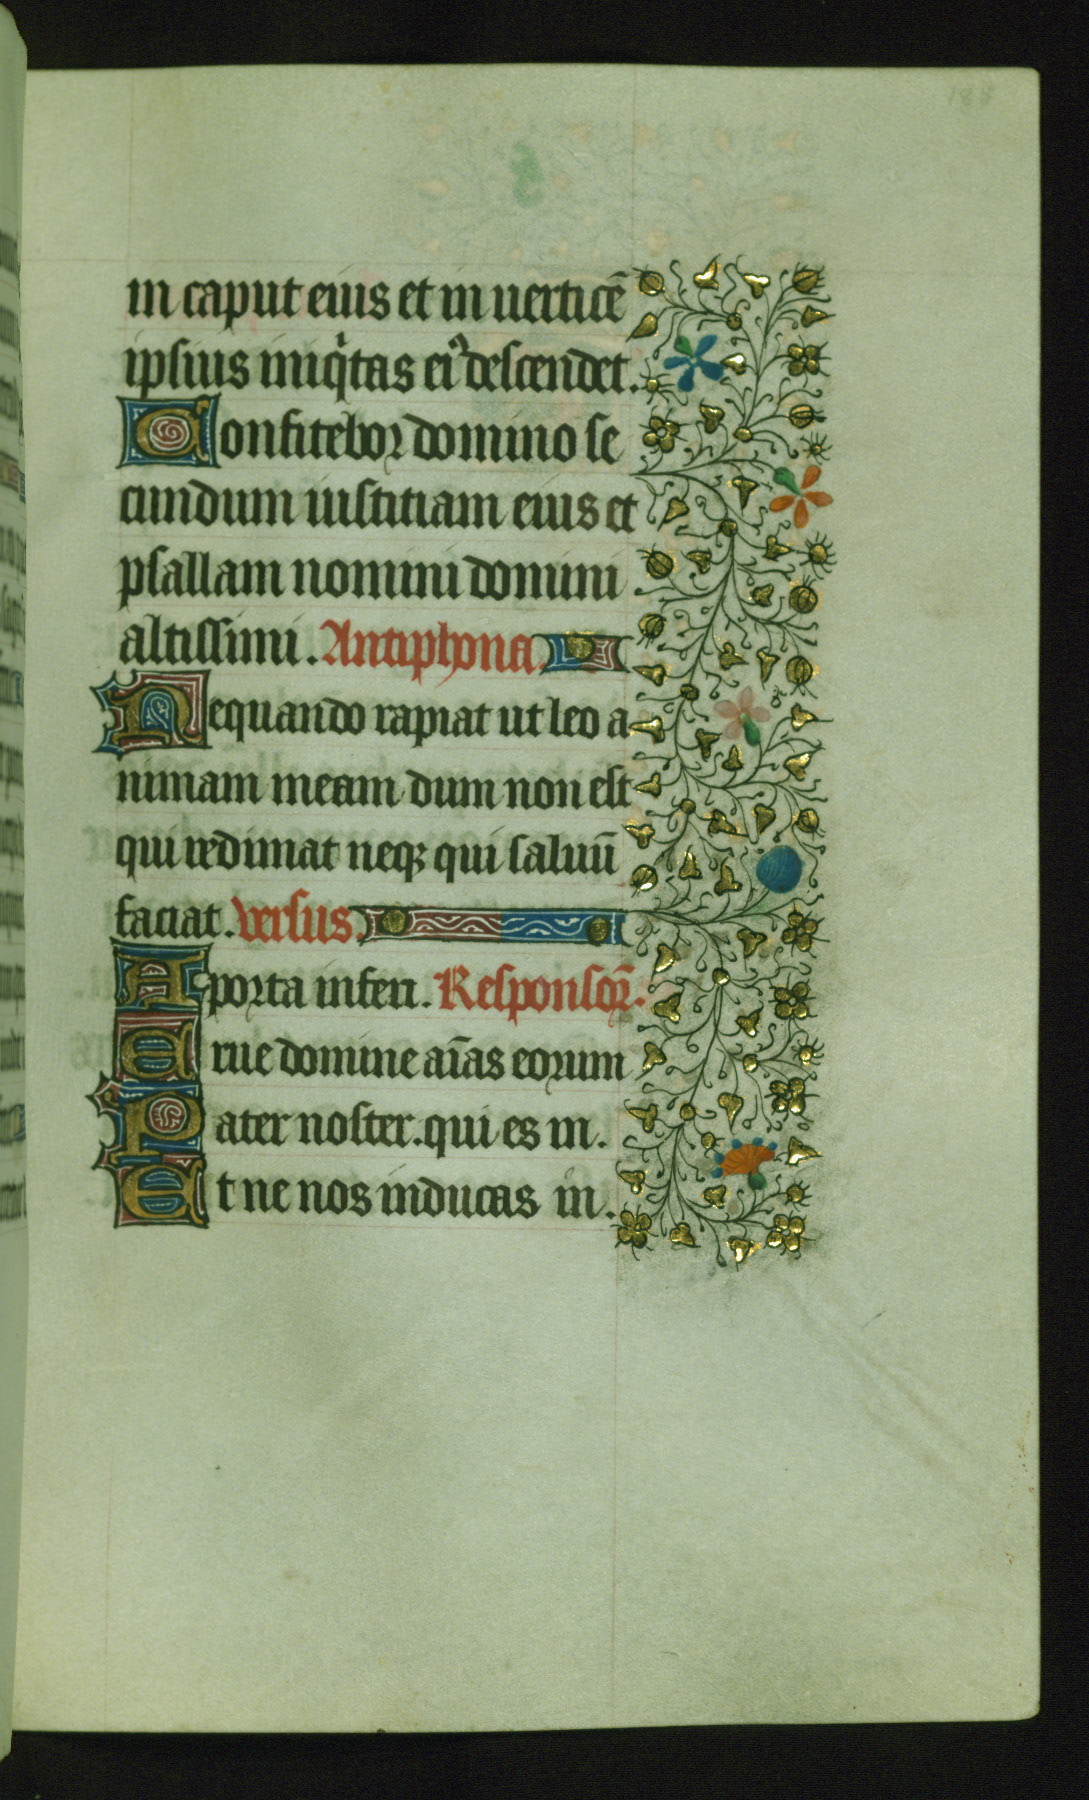 188
in caput eius et in uerticē
ipsius iniq̇tas ei⁹ descendet.
Confitebor domino se
cundum iusticiam eius et
psallam nomini domini
altissimi. Antiphona.
Nequando rapiat ut leo a
nimam meam dum non est
qui redimat neqꝫ qui saluū
faciat. versus
A porta inferi. Responsoꝝ̄.
Erue domine aīas eorum
Pater noster. qui es in.
Et ne nos inducas in.